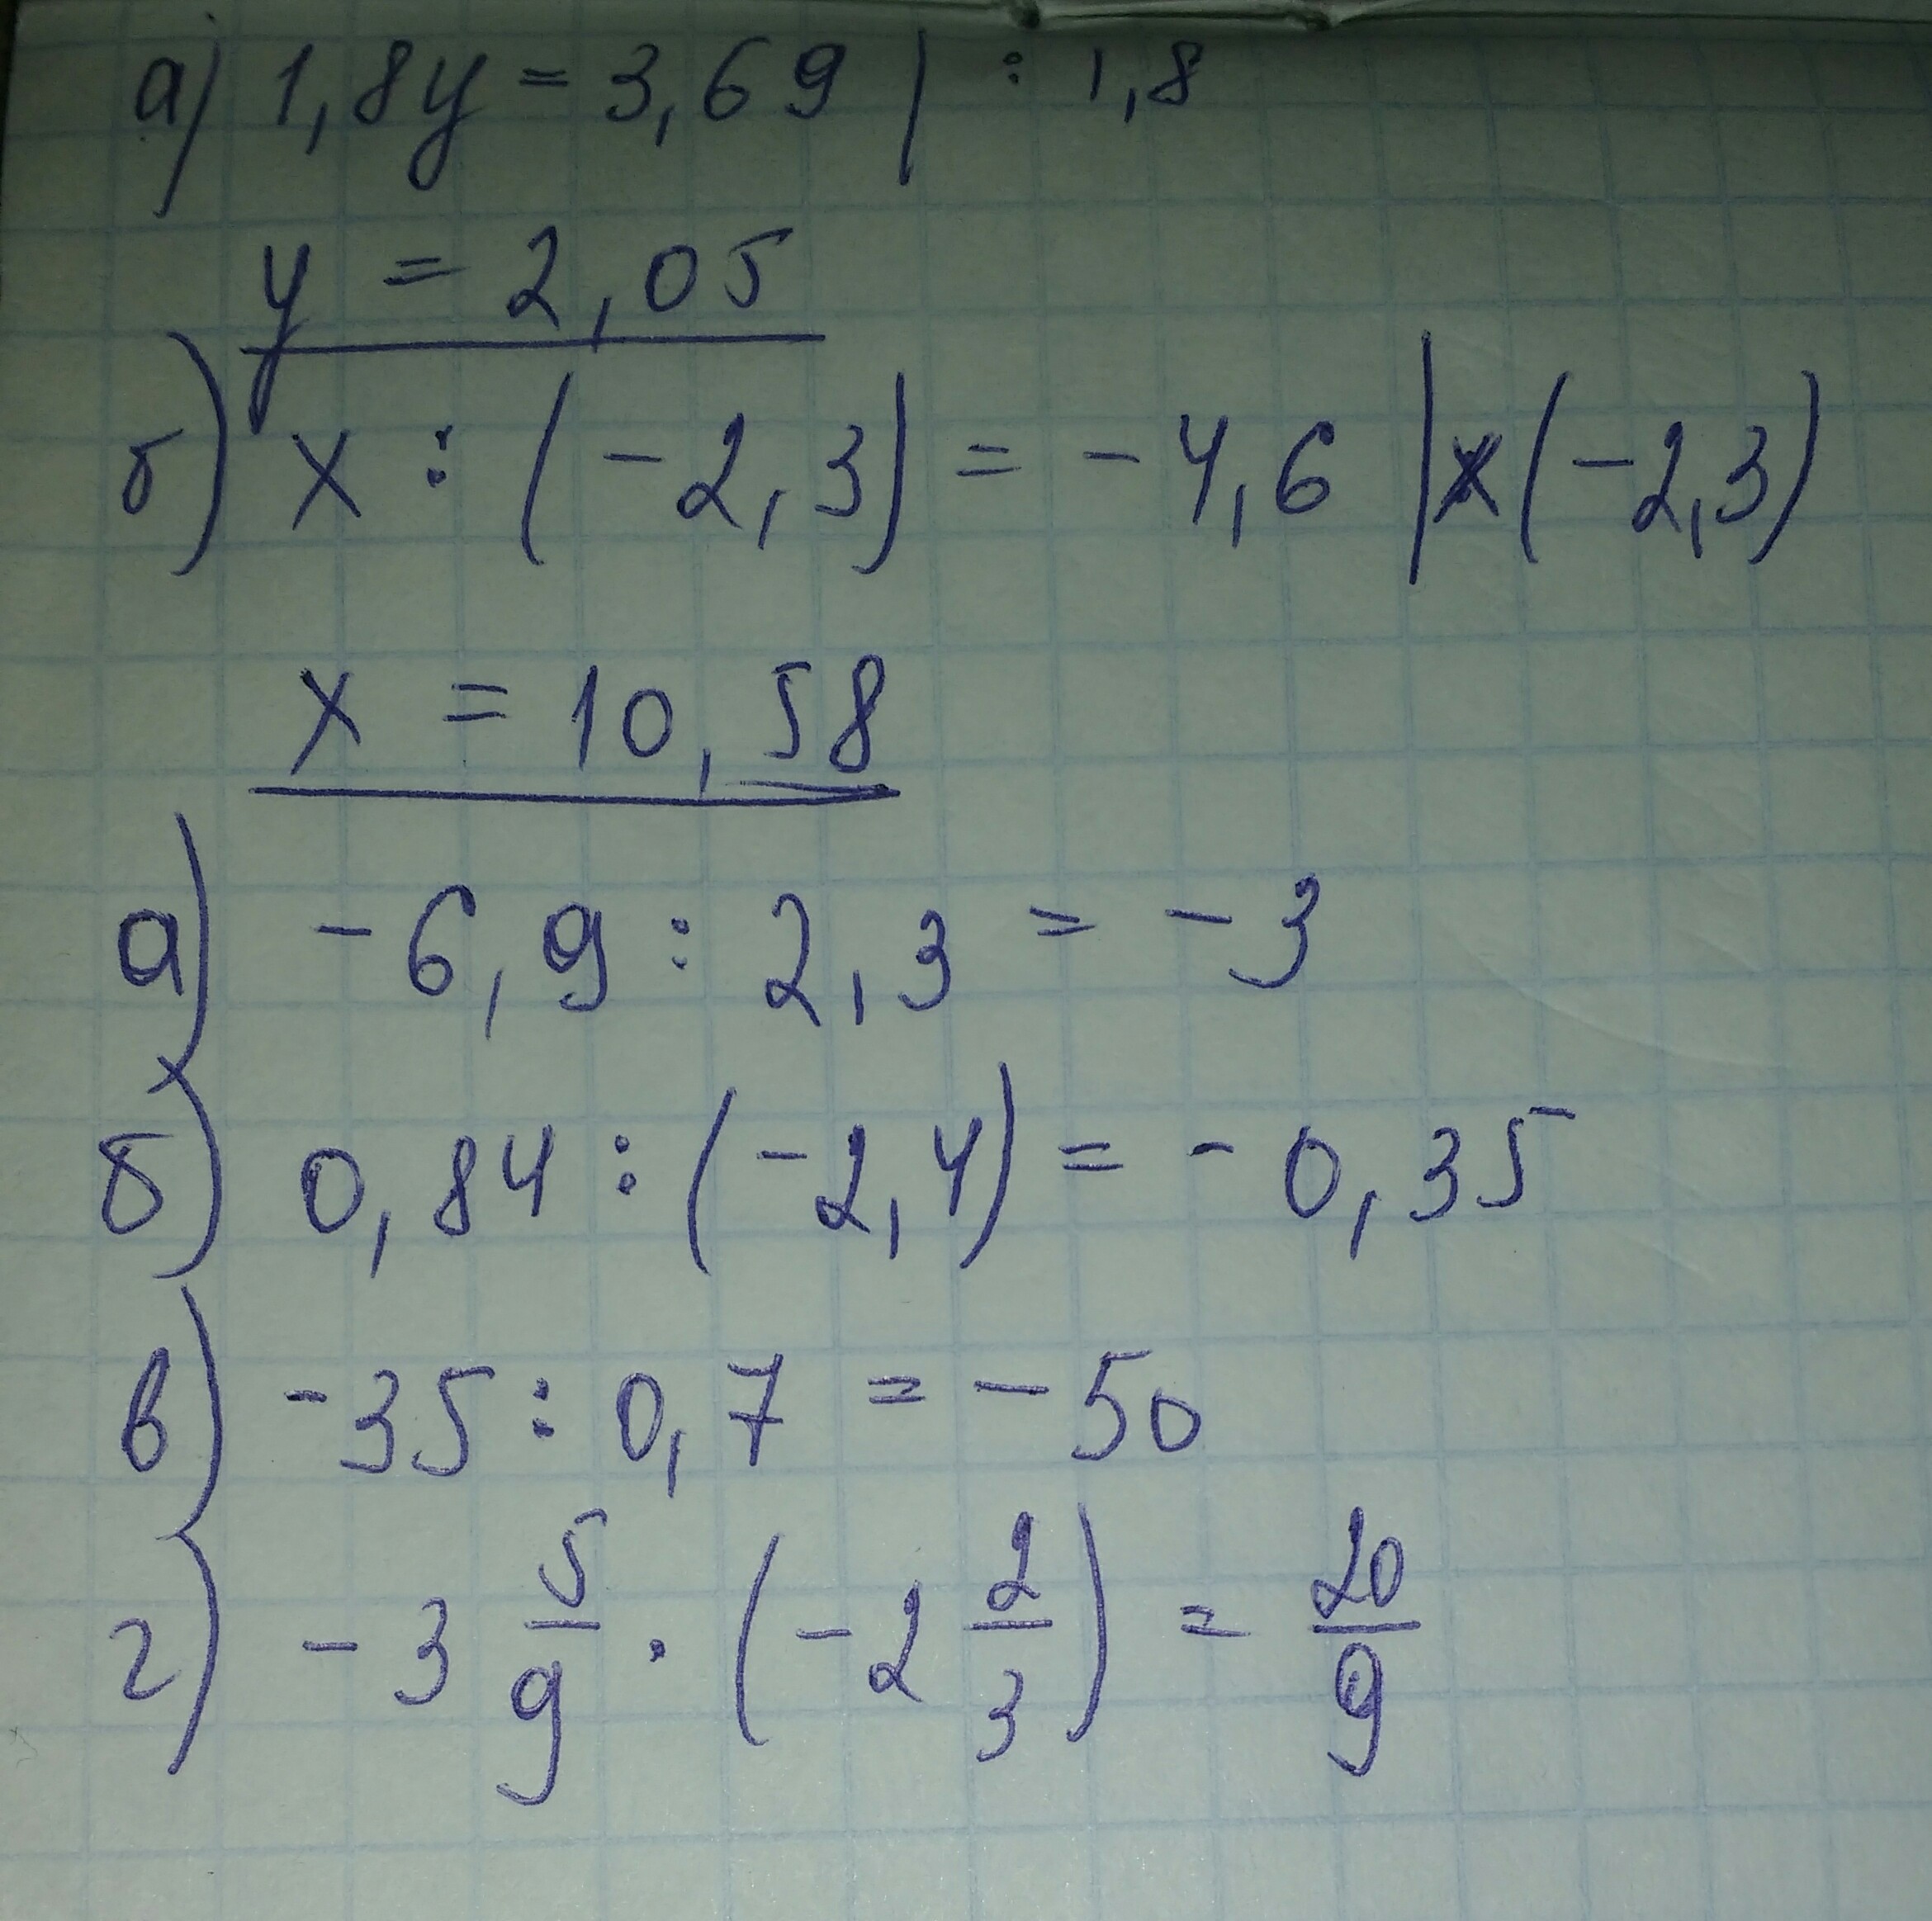 а) 1,8y = 3,69 | : 1,8
y = 2,05
б) x : (-2,3) = -4,6 | x (-2,3)
x = 10,58
а) -6,9 : 2,3 = -3
б) 0,84 : (-2,4) = -0,35
в) -35 : 0,7 = -50
г) -3 5/9 · (-2 2/3) = 20/9